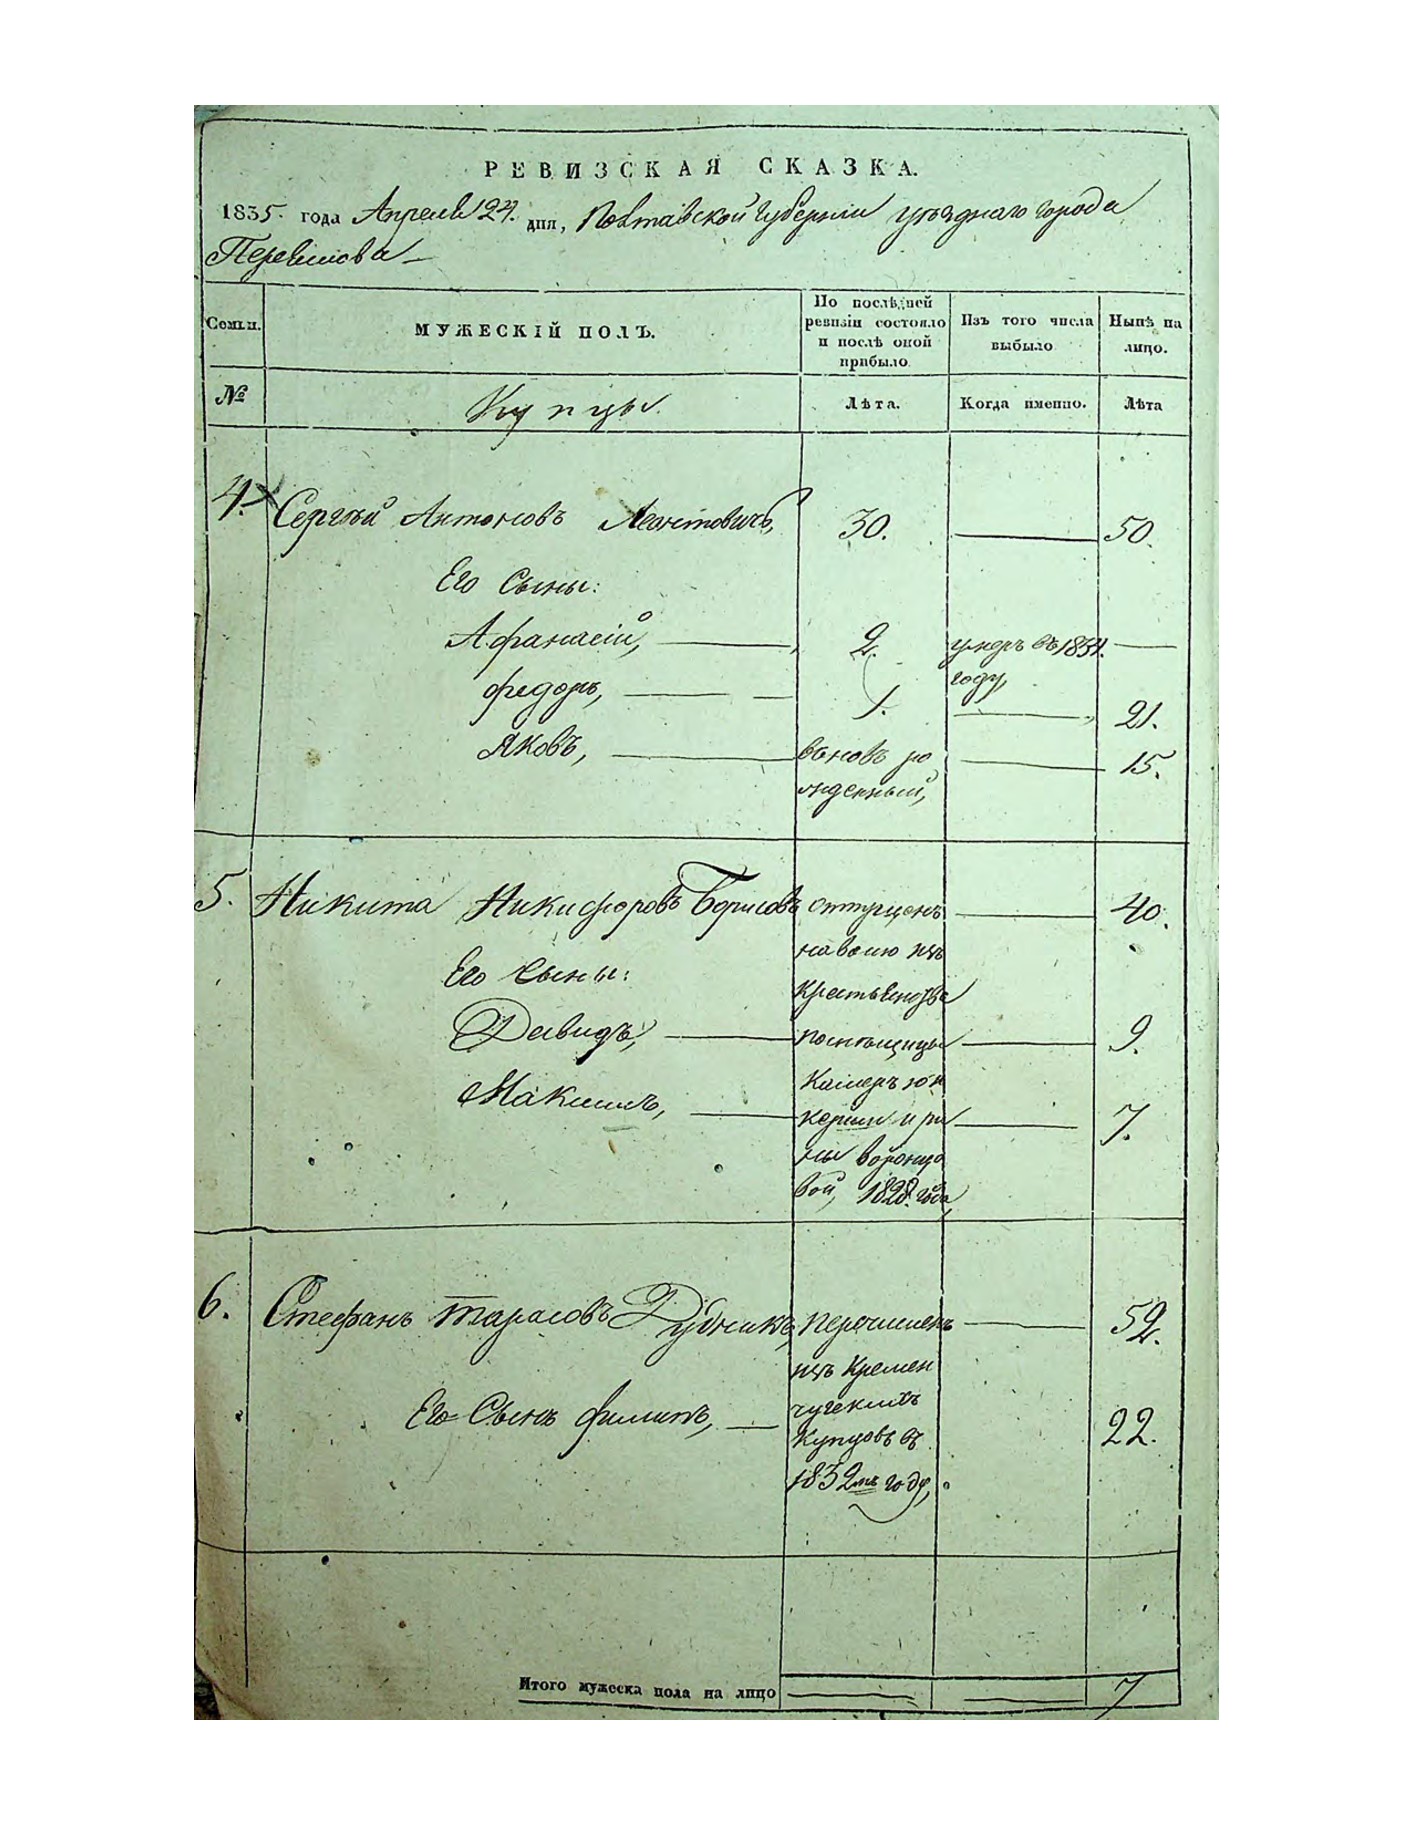 РЕВИЗСКАЯ СКАЗКА.
1835. года Апреля 24. дня, Полтавской Губернии уѣзднаго города
Переяслова
Семьи. МУЖЕСКІЙ ПОЛЪ. По послѣдней ревизіи состояло и послѣ оной прибыло Изъ того числа выбыло Нынѣ на лицо.
№ Купцы. Лѣта. Когда именно. Лѣта
4. Сергѣй Антоновъ Леонтовичъ, 30. 50.
Его Сыны:
Афанасій, 2. умеръ въ 1834.
году,
федоръ, 1. 21.
Яковъ, вновь ро 15.
жденный,
5. Никита Никифоровъ Борисовъ отпущенъ 40.
на волю изъ
Его Сыны:
крестьянства
Давидъ, помѣщицы 9.
Камеръ юн
Максимъ, керши ири 7.
ны Воронцо
вой, 1828. года,
6. Стефанъ Тарасовъ Дубникъ, перечисленъ 52.
изъ Кремен
чугскихъ
Его Сынъ филипъ, купцовъ въ 22.
1832мъ году,
Итого мужеска пола на лицо 7